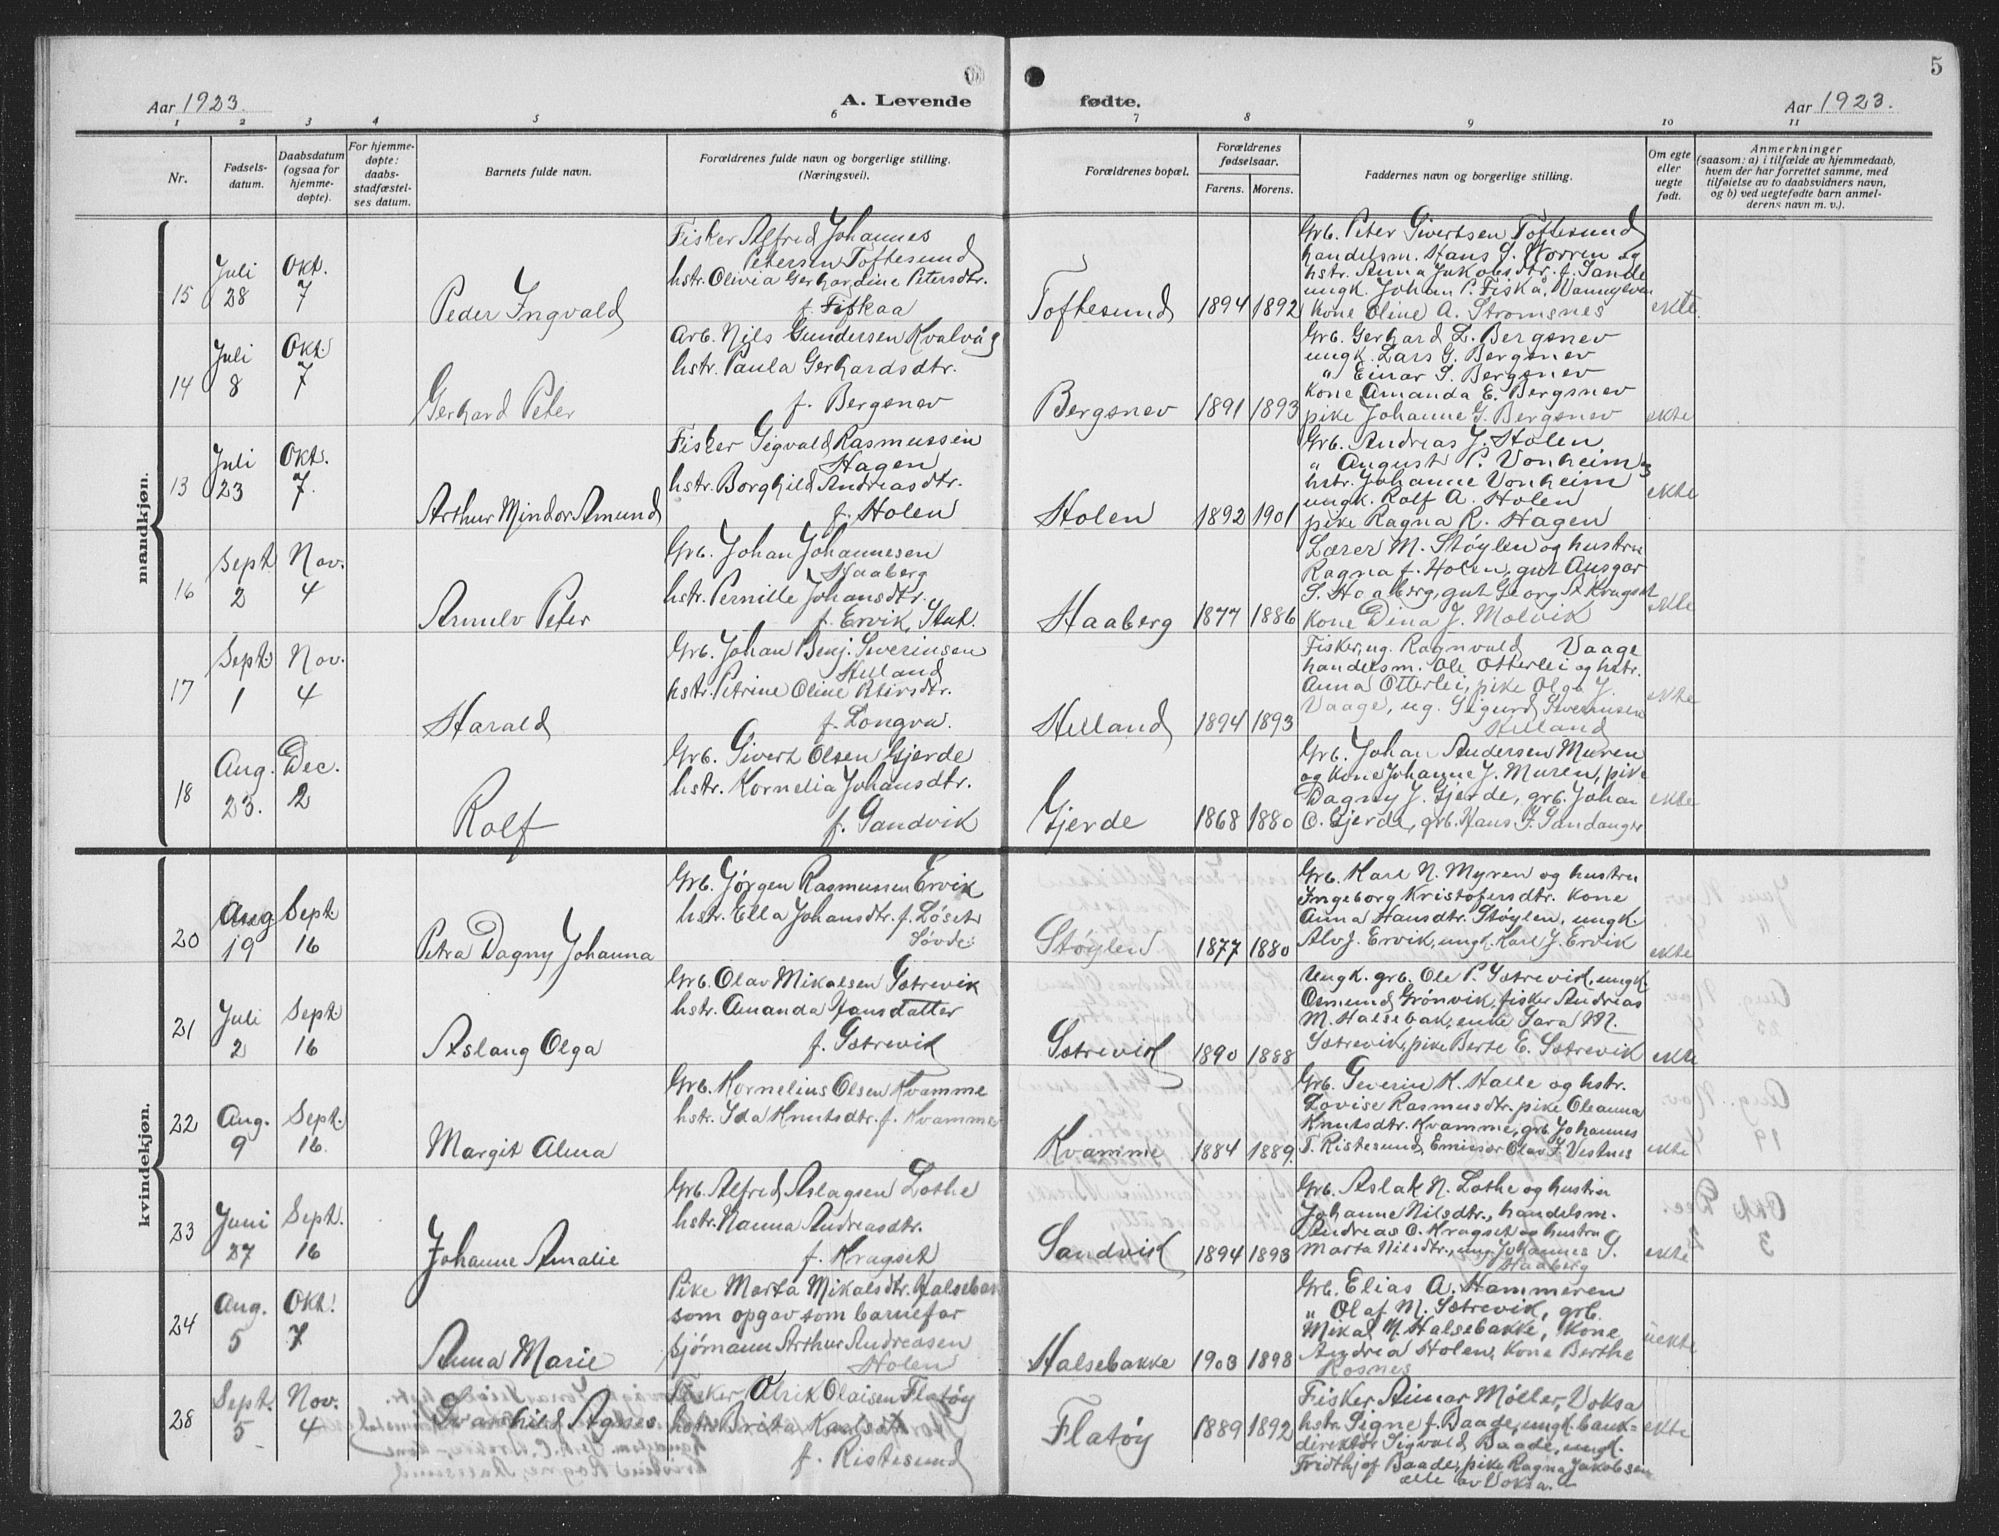 5
Aar 1923.
A. Levende fødte.
Aar 1923.
1 2 3 4 5 6 7 8 9 10 11
Nr.
Fødsels-
datum.
Daabsdatum
(ogsaa for
hjemme-
døpte).
For hjemme-
døpte:
daabs-
stadfæstel-
ses datum.
Barnets fulde navn.
Forældrenes fulde navn og borgerlige stilling.
(Næringsvei).
Forældrenes bopæl.
Forældrenes
fødselsaar.
Farens. Morens.
Faddernes navn og borgerlige stilling.
Om egte
eller
uegte
født.
Anmerkninger
(saasom: a) i tilfælde av hjemmedaab,
hvem der har forrettet samme, med
tilføielse av to daabsvidners navn,
og b) ved uegtefødte barn anmel-
derens navn m. v.).
mandkjøn.
15
Juli
28
Okt.
7
Peder Ingvald
Fisker Alfred Johannes
Petersen Toftesund
hstr. Olivia Gerhardine Petersdtr.
f. Fiskaa
Toftesund
1894 1892
Grb. Peter Sivertsen Toftesund
handelsm. Hans J. Norren og
hstr. Anna Jakobsdtr. f. Sande
ungk. Johan P. Fiskå, Vannylven
Kone Oline A. Stromsnes
ekte
14
Juli
8
Okt.
7
Gerhard Peter
Arb. Nils Gundersen Kvalvåg
hstr. Paula Gerhardsdtr.
f. Bergsnev
Bergsnev
1891 1893
Grb. Gerhard L. Bergsnev
ungk. Lars G. Bergsnev
" Einar S. Bergsnev
Kone Amanda E. Bergsnev
pike Johanne G. Bergsnev
ekte
13
Juli
23
Okt.
7.
Arthur Mindor Amund
Fisker Sigvald Rasmussen
Hagen
hstr. Borghild Andreasdtr.
f. Holen
Holen
1892 1901
Grb. Andreas J. Holen
" August P. Vonheim og
hstr. Johanne Vonheim
ungk. Rolf A. Holen
pike Ragna R. Hagen
ekte
16
Sept.
2
Nov.
4
Arnulv Peter
Grb. Johan Johannesen
Haaberg
hstr. Pernille Johansdtr.
f. Ervik, Stat.
Haaberg
1877 1886
Lærer M. Støylen og hustru
Ragna f. Holen, gut Ansgar
S. Haaberg, gut Georg A. Kragset
Kone Dina J. Molvik
ekte
17
Sept.
1
Nov.
4
Harald
Grb. Johan Benj. Severinsen
Helland
hstr. Petrine Oline Petersdtr.
f. Longva.
Helland
1894 1893
Fisker, ug. Ragnvald Vaage
handelsm. Ole Otterlei og hstr.
Anna Otterlei, pike Olga J.
Vaage, ug. Sigurd Severinsen
Helland
ekte
18
Aug.
23.
Dec.
2
Rolf
Grb. Sivert Olsen Gjerde
hstr. Kornelia Johansdtr.
f. Sandvik
Gjerde
1868 1880
Grb. Johan Andersen Muren
og Kone Johanne J. Muren, pike
Dagny J. Gjerde, grb. Johan
O. Gjerde, grb. Hans J. Sandanger
ekte
kvindekjøn.
20
Aug
19
Sept.
16
Petra Dagny Johanna
Grb. Jørgen Rasmussen Ervik
hstr. Ella Johansdtr. f. Løset,
Søvde.
Støylen
1877 1880
Grb. Karl N. Myren og hustru
Ingeborg Kristofersdtr. Kone
Anna Hansdtr. Støylen, ungk.
Alv J. Ervik, ungk. Karl J. Ervik
ekte
21
Juli
2
Sept.
16
Aslaug Olga
Grb. Olav Mikalsen Sætrevik
hstr. Amanda Hansdatter
f. Sætrevik
Sætrevik
1890 1888
Ungk. grb. Ole P. Sætrevik, ungk.
Osmund Grønvik, fisker Andreas
M. Halsebak, enke Sara M.
Sætrevik, pike Berte E. Sætrevik
ekte
22
Aug.
9
Sept.
16.
Margit Alma
Grb. Kornelius Olsen Kvamme
hstr. Ida Knutsdtr. f. Kvamme
Kvamme
1884 1889
Grb. Severin K. Halle og hstr.
Lovise Rasmusdtr. pike Oleanna
Knutsdtr. Kvamme, grb. Johannes
T. Ristesund, Emissær Olav J. Vestnes
ekte
23
Juni
27
Sept.
16
Johanne Amalie
Grb. Alfred Aslagsen Lothe
hstr. Nanna Andreasdtr.
f. Kragset
Sandvik
1894 1893
Grb. Aslak N. Lothe og hustru
Johanne Nilsdtr., handelsm.
Andreas O. Kragset og hustru
Marta Nilsdtr., ung. Johannes S.
Haaberg
ekte
24
Aug.
5
Okt.
7
Anna Marie
Pike Marta Mikalsdtr. Halsebak
som opgav som barnefar
sjømann Arthur Andreasen
Holen
Halsebakke
1903 1898
Grb. Elias A. Hammeren
" Olaf M. Sætrevik, grb.
Mikal M. Halsebakke, Kone
Andrea Holen, Kone Berthe
Rosnes
uekte
28
Sept.
5
Nov.
4
Svanhild Agnes
Fisker Alrik Olaisen Flatøy
hstr. Brita Karlsdtr.
f. Ristesund
Flatøy
1889 1892
Fisker Aimar Møller, Voksa
hstr. Signe f. Baade, ungk. bank-
direktør Sigvald Baade, ungk.
Fridthjof Baade, pike Ragna Jakobsen
alle av Voksa.
ekte